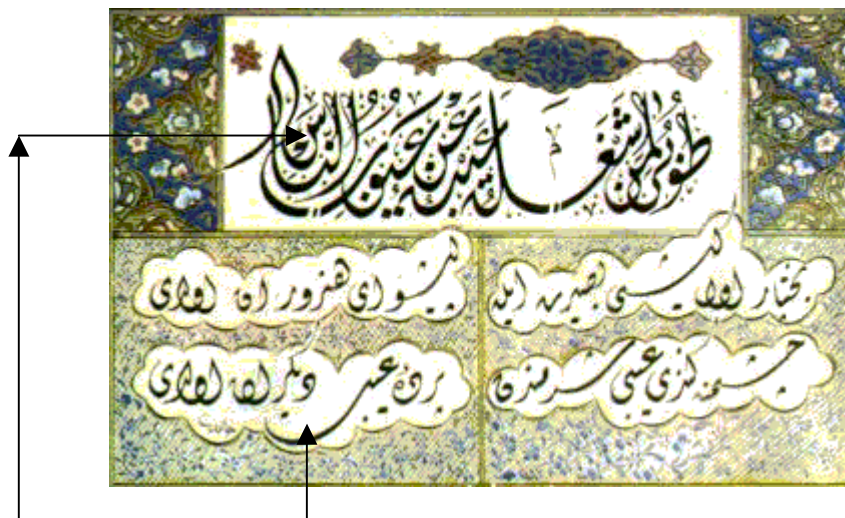 طُوبَى لِمَنْ شَغَلَهُ عَيْبُهُ عَنْ عُيُوبِ النَّاسِ
بختيار اول كيشى بصيرت ايله پيشواى هنروران اولدى
چشمنه كندى عيبى شرمندن پردۀ عيب ديكران اولدى